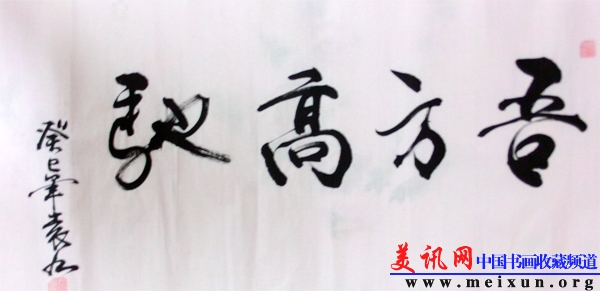 吾方高馳
癸巳年袁
美讯网 中国书画收藏频道
www.meixun.org